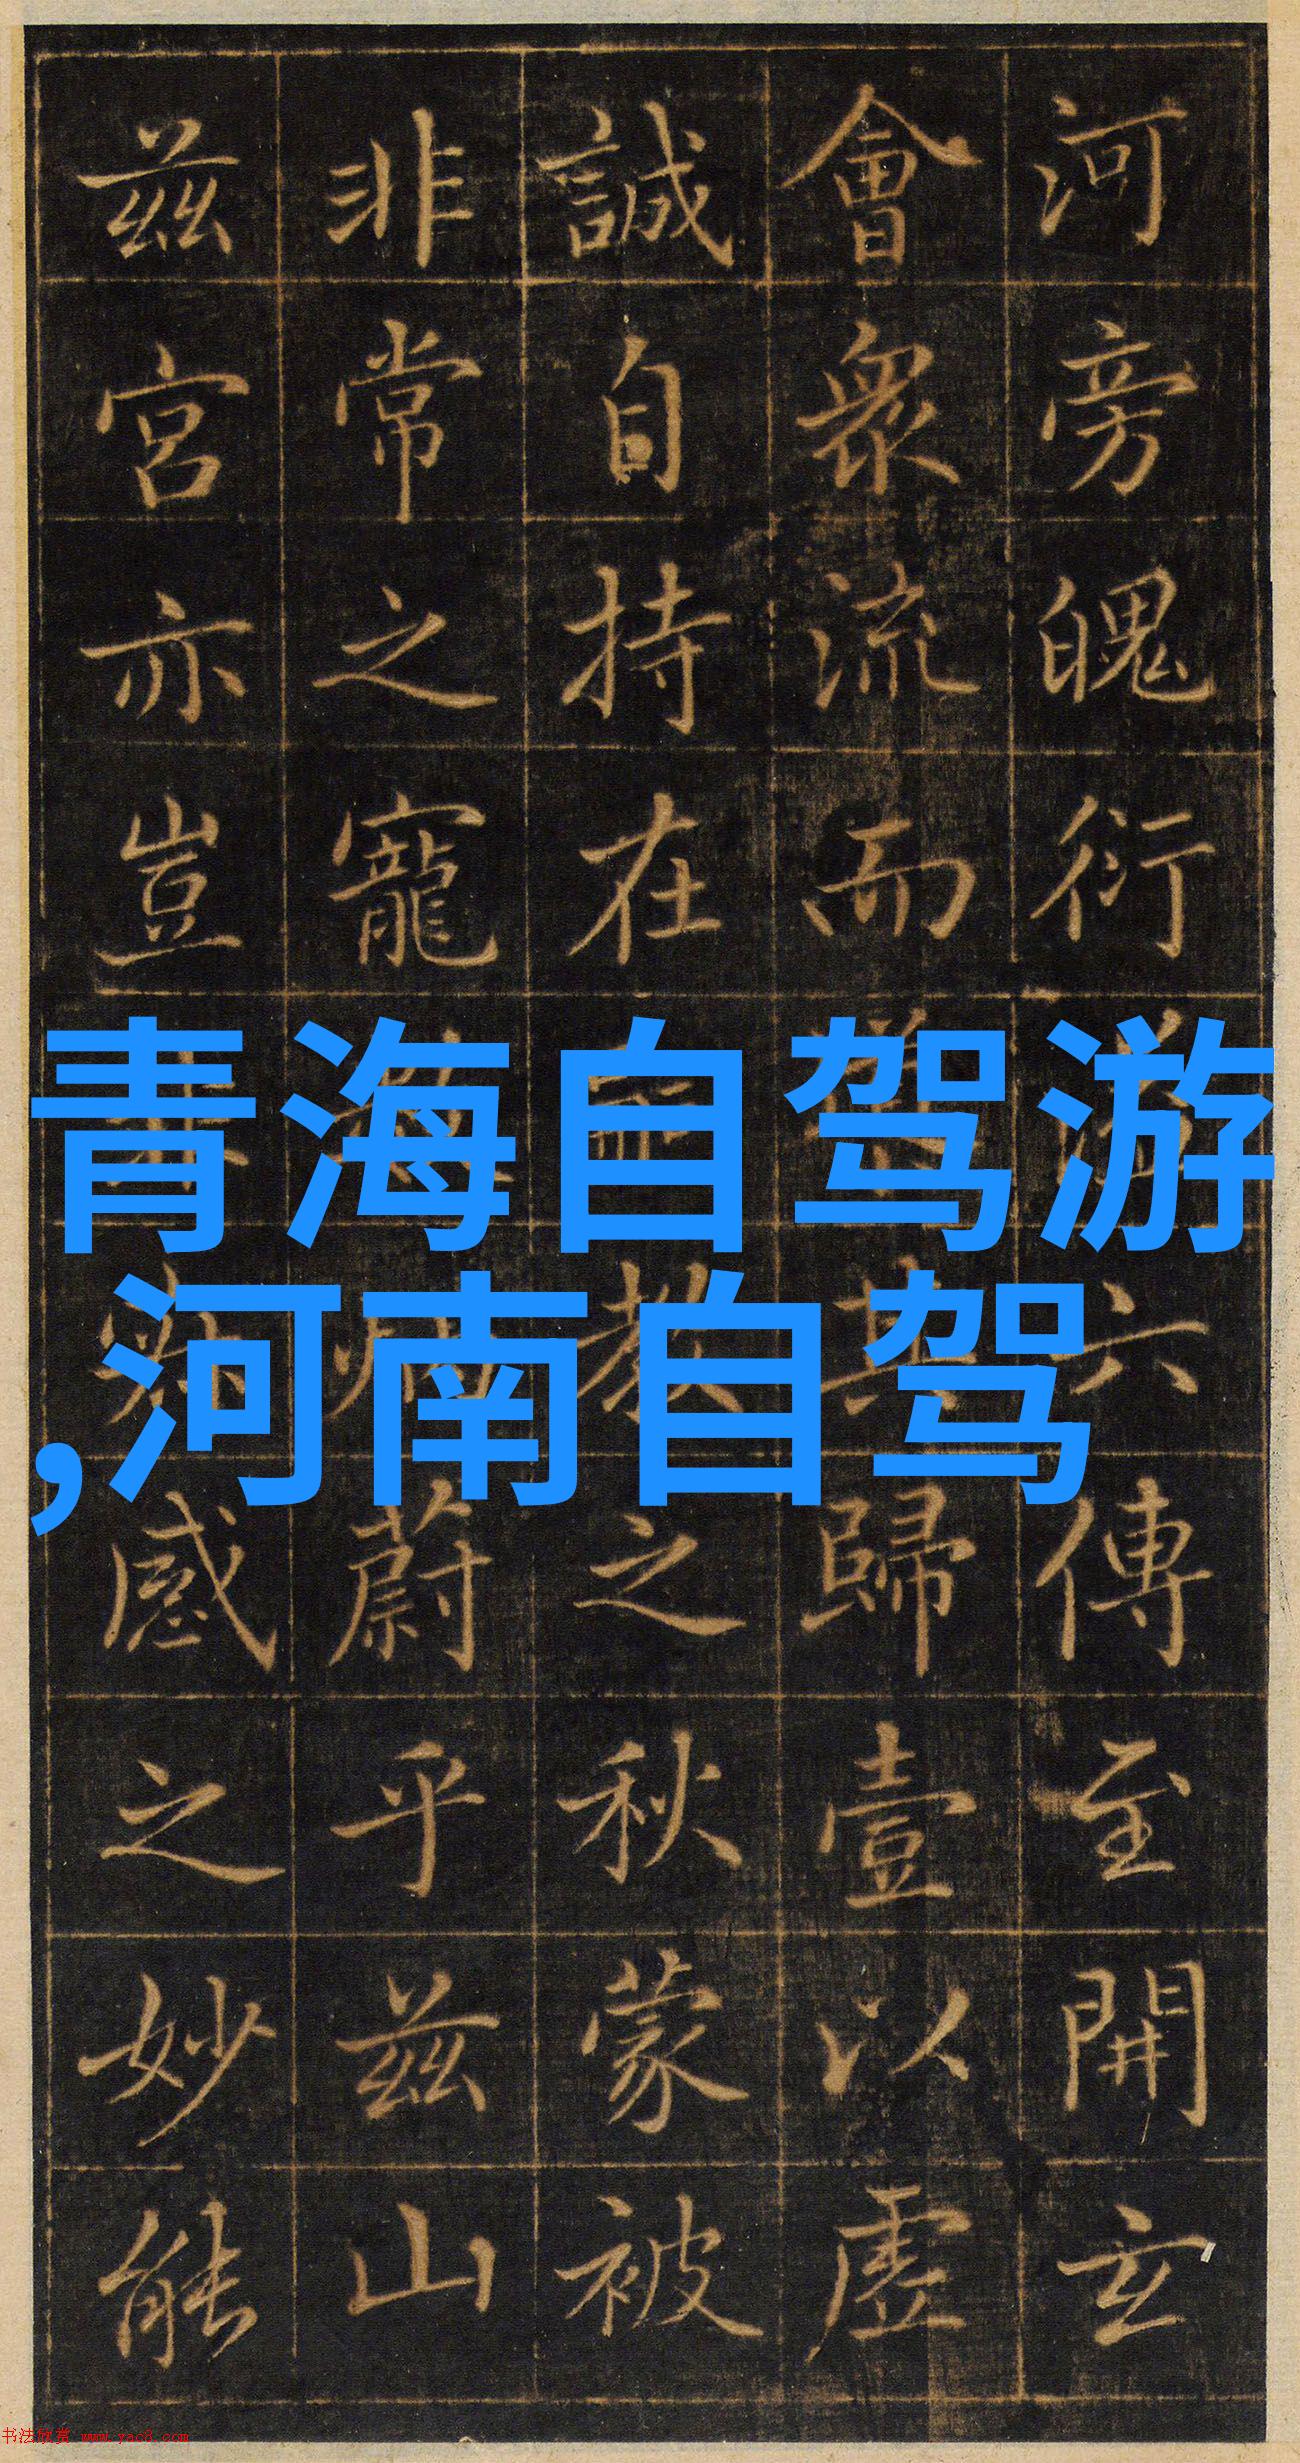 河旁魄衍六傳至開玄
會衆流而其歸壹以虛
誠自持在教之秋蒙被
非常之寵蔚乎茲山
茲宮亦豈感之妙能
青海自驾游
,河南自驾
书法欣赏 www.yac8.com